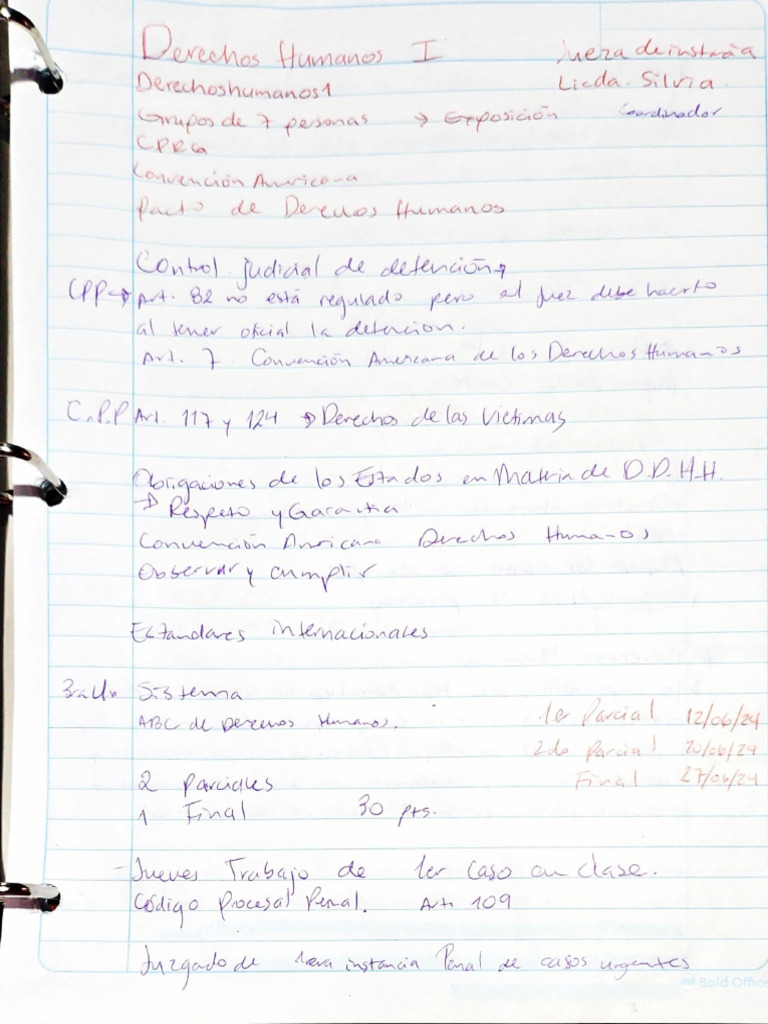 Derechos Humanos I
Jueza de
Licda. Silvia
Derechoshumanos1
Grupos de 7 personas → Exposición Coordinador
CPRG
Convención Americana
Pacto de Derechos Humanos
Control judicial de detención →
CPP → Art. 82 no está regulado pero el juez debe hacerlo
al tener oficial la detención.
Art. 7 Convención Americana de los Derechos Humanos
C.P.P Art. 117 y 124 → Derechos de las Victimas
Obligaciones de los Estados en Materia de D.D.H.H.
→ Respeto y Garantia
Convención Americana Derechos Humanos
Observar y cumplir
Estandares internacionales
Sistema
ABC de Derechos Humanos.
1er Parcial 12/06/24
2do Parcial 20/06/24
Final 27/06/24
2 Parciales
1 Final 30 pts.
- Jueves Trabajo de 1er caso en clase.
Código Procesal Penal. Art. 109
Juzgado de 1era instancia Penal de casos urgentes
Bold Office